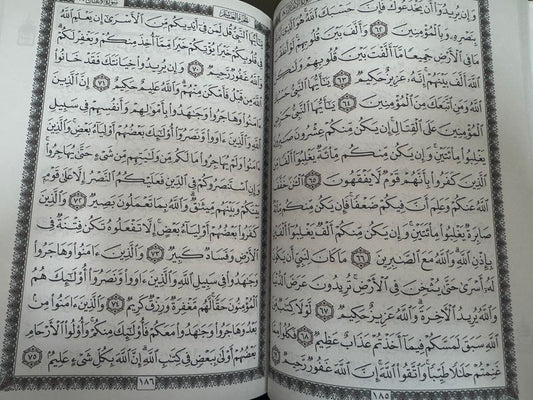 وَإِن يُرِيدُوٓا۟ أَن يَخْدَعُوكَ فَإِنَّ حَسْبَكَ ٱللَّهُ هُوَ ٱلَّذِىٓ أَيَّدَكَ
بِنَصْرِهِۦ وَبِٱلْمُؤْمِنِينَ ٦٢ وَأَلَّفَ بَيْنَ قُلُوبِهِمْ لَوْ أَنفَقْتَ
مَا فِى ٱلْأَرْضِ جَمِيعًا مَّآ أَلَّفْتَ بَيْنَ قُلُوبِهِمْ وَلَٰكِنَّ
ٱللَّهَ أَلَّفَ بَيْنَهُمْ إِنَّهُۥ عَزِيزٌ حَكِيمٌ ٦٣ يَٰٓأَيُّهَا ٱلنَّبِىُّ حَسْبُكَ
ٱللَّهُ وَمَنِ ٱتَّبَعَكَ مِنَ ٱلْمُؤْمِنِينَ ٦٤ يَٰٓأَيُّهَا ٱلنَّبِىُّ حَرِّضِ
ٱلْمُؤْمِنِينَ عَلَى ٱلْقِتَالِ إِن يَكُن مِّنكُمْ عِشْرُونَ صَٰبِرُونَ
يَغْلِبُوا۟ مِا۟ئَتَيْنِ وَإِن يَكُن مِّنكُم مِّا۟ئَةٌ يَغْلِبُوٓا۟ أَلْفًا مِّنَ
ٱلَّذِينَ كَفَرُوا۟ بِأَنَّهُمْ قَوْمٌ لَّا يَفْقَهُونَ ٦٥ ٱلْـَٰٔنَ خَفَّفَ
ٱللَّهُ عَنكُمْ وَعَلِمَ أَنَّ فِيكُمْ ضَعْفًا فَإِن يَكُن مِّنكُم مِّا۟ئَةٌ
صَابِرَةٌ يَغْلِبُوا۟ مِا۟ئَتَيْنِ وَإِن يَكُن مِّنكُمْ أَلْفٌ يَغْلِبُوٓا۟ أَلْفَيْنِ
بِإِذْنِ ٱللَّهِ وَٱللَّهُ مَعَ ٱلصَّٰبِرِينَ ٦٦ مَا كَانَ لِنَبِىٍّ أَن يَكُونَ
لَهُۥٓ أَسْرَىٰ حَتَّىٰ يُثْخِنَ فِى ٱلْأَرْضِ تُرِيدُونَ عَرَضَ ٱلدُّنْيَا
وَٱللَّهُ يُرِيدُ ٱلْـَٔاخِرَةَ وَٱللَّهُ عَزِيزٌ حَكِيمٌ ٦٧ لَّوْلَا كِتَٰبٌ مِّنَ
ٱللَّهِ سَبَقَ لَمَسَّكُمْ فِيمَآ أَخَذْتُمْ عَذَابٌ عَظِيمٌ ٦٨ فَكُلُوا۟ مِمَّا
غَنِمْتُمْ حَلَٰلًا طَيِّبًا وَٱتَّقُوا۟ ٱللَّهَ إِنَّ ٱللَّهَ غَفُورٌ رَّحِيمٌ ٦٩
١٨٥
الجزء العاشر
سورة الأنفال
يَٰٓأَيُّهَا ٱلنَّبِىُّ قُل لِّمَن فِىٓ أَيْدِيكُم مِّنَ ٱلْأَسْرَىٰٓ إِن يَعْلَمِ ٱللَّهُ
فِى قُلُوبِكُمْ خَيْرًا يُؤْتِكُمْ خَيْرًا مِّمَّآ أُخِذَ مِنكُمْ وَيَغْفِرْ لَكُمْ
وَٱللَّهُ غَفُورٌ رَّحِيمٌ ٧٠ وَإِن يُرِيدُوا۟ خِيَانَتَكَ فَقَدْ خَانُوا۟
ٱللَّهَ مِن قَبْلُ فَأَمْكَنَ مِنْهُمْ وَٱللَّهُ عَلِيمٌ حَكِيمٌ ٧١ إِنَّ ٱلَّذِينَ
ءَامَنُوا۟ وَهَاجَرُوا۟ وَجَٰهَدُوا۟ بِأَمْوَٰلِهِمْ وَأَنفُسِهِمْ فِى سَبِيلِ
ٱللَّهِ وَٱلَّذِينَ ءَاوَوا۟ وَّنَصَرُوٓا۟ أُو۟لَٰٓئِكَ بَعْضُهُمْ أَوْلِيَآءُ بَعْضٍ وَٱلَّذِينَ
ءَامَنُوا۟ وَلَمْ يُهَاجِرُوا۟ مَا لَكُم مِّن وَلَٰيَتِهِم مِّن شَىْءٍ حَتَّىٰ يُهَاجِرُوا۟
وَإِنِ ٱسْتَنصَرُوكُمْ فِى ٱلدِّينِ فَعَلَيْكُمُ ٱلنَّصْرُ إِلَّا عَلَىٰ قَوْمٍۭ
بَيْنَكُمْ وَبَيْنَهُم مِّيثَٰقٌ وَٱللَّهُ بِمَا تَعْمَلُونَ بَصِيرٌ ٧٢ وَٱلَّذِينَ
كَفَرُوا۟ بَعْضُهُمْ أَوْلِيَآءُ بَعْضٍ إِلَّا تَفْعَلُوهُ تَكُن فِتْنَةٌ فِى
ٱلْأَرْضِ وَفَسَادٌ كَبِيرٌ ٧٣ وَٱلَّذِينَ ءَامَنُوا۟ وَهَاجَرُوا۟
وَجَٰهَدُوا۟ فِى سَبِيلِ ٱللَّهِ وَٱلَّذِينَ ءَاوَوا۟ وَّنَصَرُوٓا۟ أُو۟لَٰٓئِكَ هُمُ
ٱلْمُؤْمِنُونَ حَقًّا لَّهُم مَّغْفِرَةٌ وَرِزْقٌ كَرِيمٌ ٧٤ وَٱلَّذِينَ ءَامَنُوا۟ مِنۢ
بَعْدُ وَهَاجَرُوا۟ وَجَٰهَدُوا۟ مَعَكُمْ فَأُو۟لَٰٓئِكَ مِنكُمْ وَأُو۟لُوا۟ ٱلْأَرْحَامِ
بَعْضُهُمْ أَوْلَىٰ بِبَعْضٍ فِى كِتَٰبِ ٱللَّهِ إِنَّ ٱللَّهَ بِكُلِّ شَىْءٍ عَلِيمٌۢ ٧٥
١٨٦